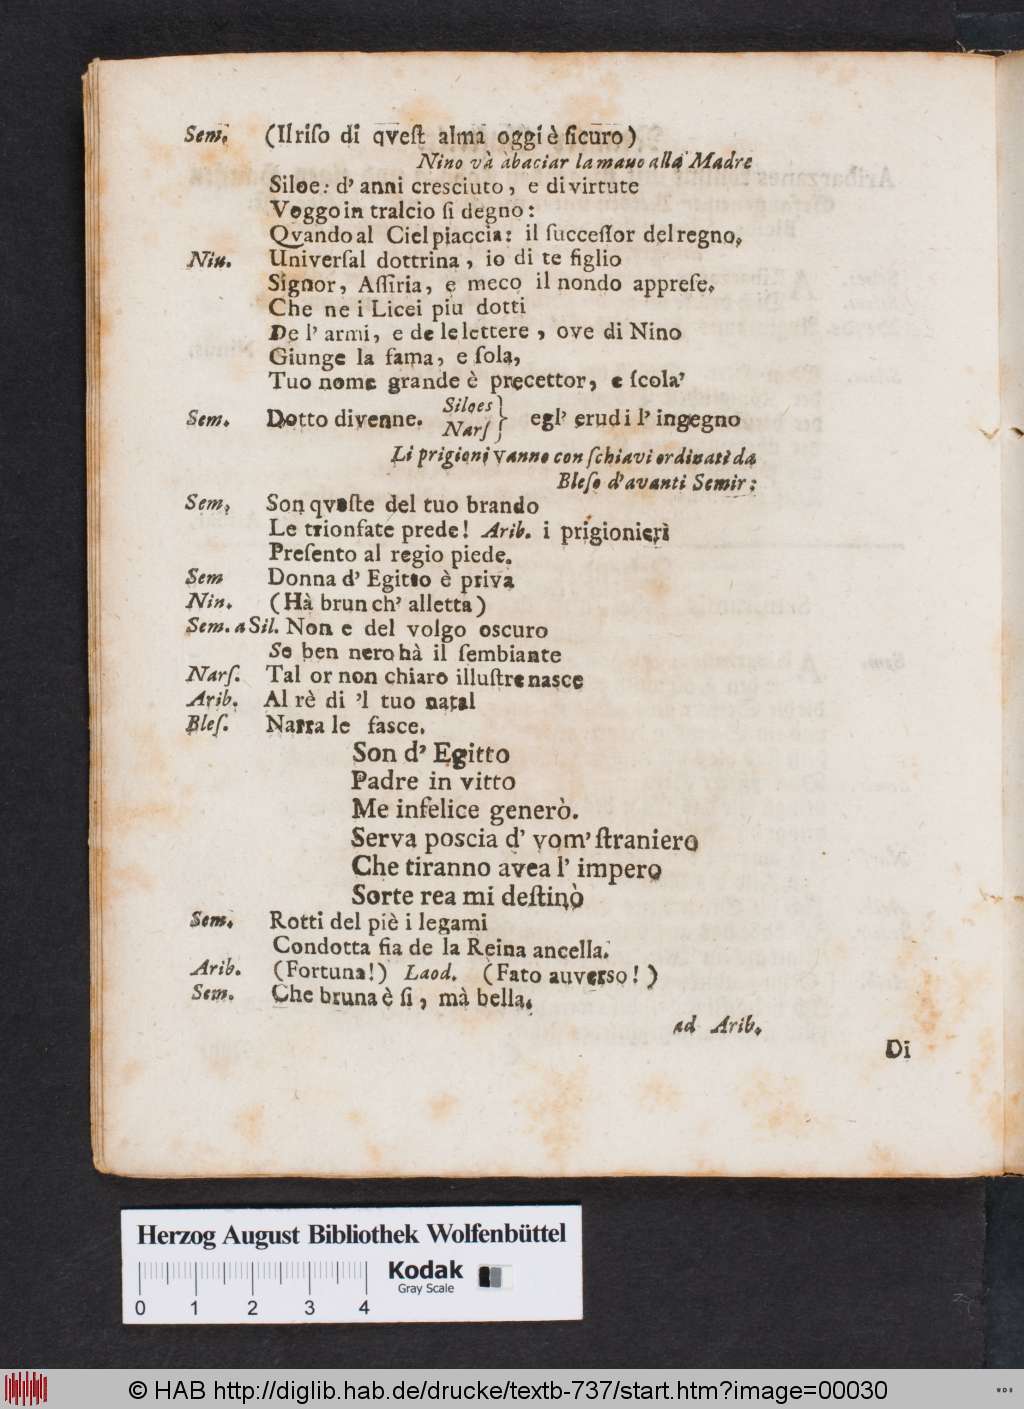 Sem. (Il riſo di qveſt alma oggi è ſicuro)
Nino và àbaciar la mauo allà Madre
Siloe: d' anni cresciuto, e di virtute
Veggo in tralcio ſi degno:
Qvando al Ciel piaccia: il ſucceſſor del regno,
Niu. Univerſal dottrina, io di te figlio
Signor, Aſſiria, e meco il nondo appreſe,
Che ne i Licei piu dotti
De l' armi, e de le lettere, ove di Nino
Giunge la fama, e ſola,
Tuo nome grande è precettor, e ſcola'
Sem. Dotto divenne. Siloes Narſ } egl' erudi l' ingegno
Li prigioni vanno con ſchiavi ordinati da
Bleſo d'avanti Semir:
Sem, Son qveſte del tuo brando
Le trionfate prede! Arib. i prigionierì
Preſento al regio piede.
Sem Donna d' Egitto è priva
Nin. (Hà brun ch' alletta)
Sem. a Sil. Non e del volgo oscuro
Se ben nero hà il ſembiante
Narſ. Tal or non chiaro illuſtre nasce
Arib. Al rè di 'l tuo natal
Bleſ. Narra le fasce.
Son d' Egitto
Padre in vitto
Me infelice generò.
Serva poscia d' vom' ſtraniero
Che tiranno avea l' impero
Sorte rea mi deſtinò
Sem. Rotti del piè i legami
Condotta fia de la Reina ancella.
Arib. (Fortuna!) Laod. (Fato auverso!)
Sem. Che bruna è ſi, mà bella.
ad Arib.
Di
Herzog August Bibliothek Wolfenbüttel
Kodak
Gray Scale
0 1 2 3 4
© HAB http://diglib.hab.de/drucke/textb-737/start.htm?image=00030